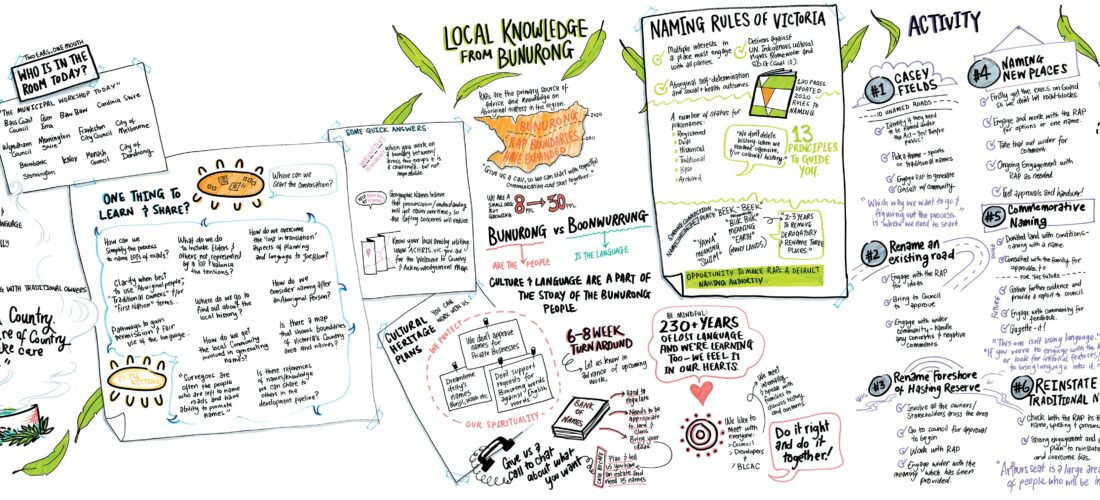 TWO EARS, ONE MOUTH
WHO IS IN THE
ROOM TODAY?
"THE MUNICIPAL WORKSHOP TODAY"
Bass Coast
Council
Baw Baw
Cardinia Shire
Wyndham
Council
Mornington
Shire
Frankston
City Council
City of
Melbourne
Brimbank
Monash
Council
City of
Dandenong
Stonnington
ONE THING TO
LEARN & SHARE?
Where can we
start the conversation?
How can we
simplify the process
to name LOTS of roads?
What do we do
to include Elders &
others not represented
by a RAP & balance
the tensions?
How do we overcome
the 'lost in translation'
aspects of planning
and language to Joe Bloe?
Clarity when best
to use "Aboriginal people",
"Traditional owners" &/or
"First Nation" terms...
Where do we go to
find out about the
local history?
How do we
consider naming after
an Aboriginal Person?
Pathways to gain
permission & fair
use of the language...
How do we get
the local community
involved in generating
names?
Is there a map
that shows boundaries
of Victoria's Country
area and names?
"Surveyors are
often the people
who are left to name
roads and have
ability to promote
names."
Is there references
of names/knowledge
we can share to
others in the
development pipeline?
SOME QUICK ANSWERS:
When you work on
a boundary between
cross two groups it is
a challenge... but not
impossible
Geographic Names believe
that pronunciation/understanding
will get easier overtime, so the
safety concerns will reduce
Know your local treaty visiting
for the Welcome to Country
& Acknowledgement Map
LOCAL KNOWLEDGE
FROM BUNURONG
RAPs are the primary source of
advice and knowledge on
Aboriginal matters in the region.
BUNURONG
RAP BOUNDARIES
HAVE EXPANDED
2020
2021
"Give us a call, so we can start with respectful
communication and start together."
WE ARE A
SMALL ORG
BUT
GROWING
8 PPL → 50 PPL
BUNURONG VS BOONWURRUNG
ARE THE PEOPLE
IS THE LANGUAGE
CULTURE & LANGUAGE ARE A PART OF
THE STORY OF THE BUNURONG
PEOPLE
CULTURAL
HERITAGE
PLANS
YOU CAN
WORK WITH US
WE PROTECT
We don't approve
names for
Private Businesses
Dreamtime
deity's
names
Bunjil, Waan etc
Don't support
requests for
Bunurong words
against "English
words"
OUR SPIRITUALITY
Give us a
call to chat
about what
you want
6-8 WEEK
TURN AROUND
Let us know in
advance of upcoming
work.
BANK OF
NAMES
Hard to
regulate
Needs to be
appropriate
to land &
clans
Bring your
ideas
Plan & tell
us you have
an estate and
need 15 names
BE MINDFUL:
230+ YEARS
OF LOST LANGUAGE
AND WE'RE LEARNING
TOO - WE FEEL IT
IN OUR HEARTS.
We like to
meet with
everyone:
Council
Developers
& BLCAC
Do it right
and do it
together!
NAMING RULES OF VICTORIA
Multiple interests in
a place must engage
with all parties.
Delivers against
UN Indigenous cultural
rights framework and
SDG (Goal 10).
Aboriginal self-determination
and social & health outcomes.
120 PAGES
UPDATED
2020
RULES TO
NAMING
A number of status for
placenames:
Registered
Dual
Historical
Traditional
Base
Archived
"We don't delete
history when we
readopt aboriginal
and/or colonial history."
13
PRINCIPLES
TO GUIDE
YOU
"YAWA"
MEANING
"SWIM"
"BEEK-BEEK"
"BUK BUK"
MEANING
"EARTH"
(MANY LANDS)
"2-3 YEARS
TO REMOVE
DEROGATORY
& RENAME THREE
PLACES."
OPPORTUNITY TO MAKE RAP'S A DEFAULT
NAMING AUTHORITY...
ACTIVITY
#1 CASEY
FIELDS
10 UNAMED ROADS
Identify if they need
to be named under
the Act - Yes! they're
private!
Pick a theme - sports
or traditional names
Engage RAP to generate
Consult w/ community
"Which way we want to go &
figuring out the process.
is "where" we need to start
#2 Rename an
existing road
Engage with the RAP
for ideas
Bring to Council
to approve
Engage with wider
community - handle
any concerns & negative
comments
#3 Rename Foreshore
of Hasting Reserve
Involve all the owners/
stakeholders across the area
Go to council for approval
to begin
Work with RAP
Engage wider with the
meaning which has been
provided.
#4 NAMING
NEW PLACES
Firstly get the execs on board
so we don't hit road-blocks.
Engage and work with the RAP
for options or one name.
Take that out wider for
comment.
Ongoing Engagement with
RAP as needed.
Get approvals and handover!
#5 Commemorative
Naming
Donated land with conditions-
naming with a name.
Consulted with the family for
approvals &
FOR THE FUTURE
FUTURE
Gather further evidence and
provide a report to council
Engage with community for
feedback.
Gazette-it!
"This one isn't using language."
#6 REINSTATE